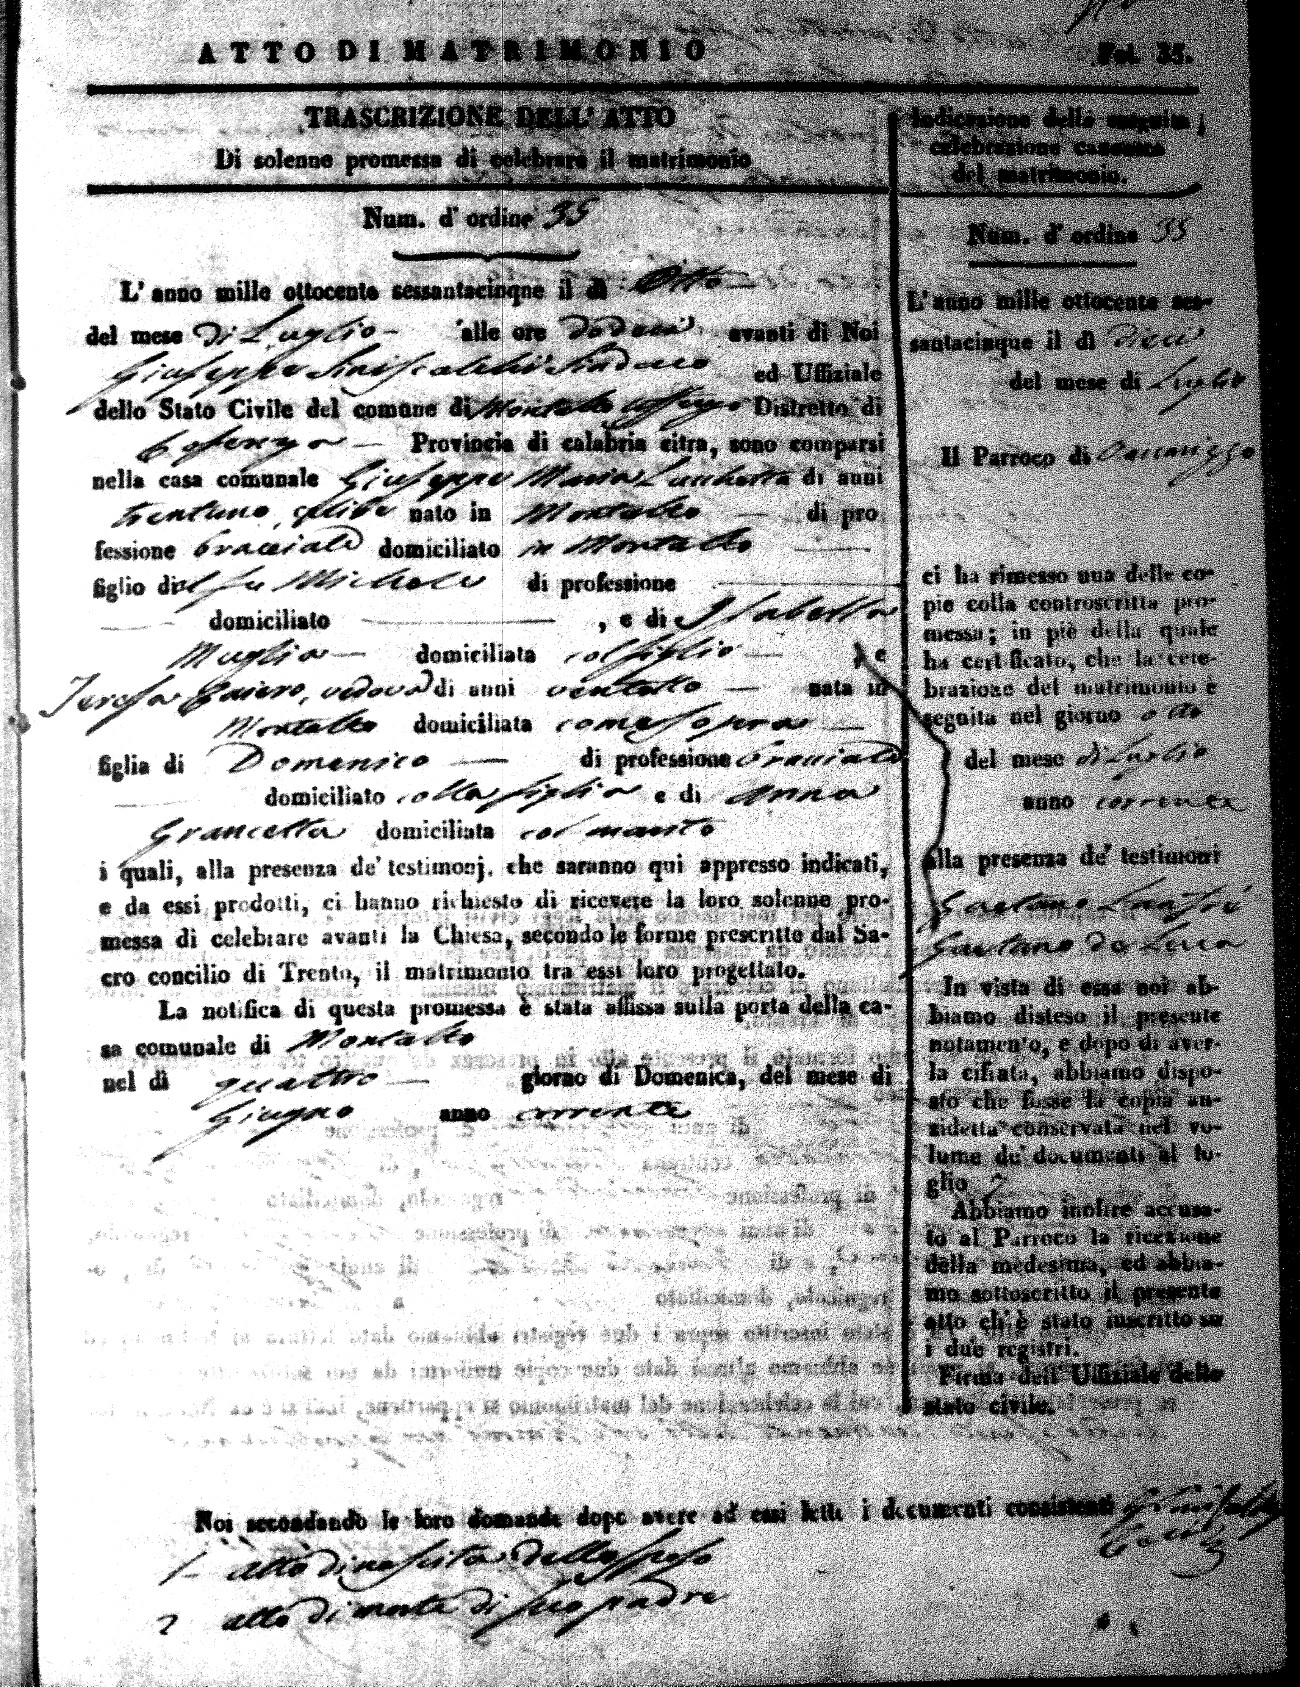 ATTO DI MATRIMONIO
Fol. 35.
TRASCRIZIONE DELL' ATTO
Di solenne promessa di celebrare il matrimonio
Num. d' ordine 35
L' anno mille ottocento sessantacinque il dì Otto
del mese di Luglio alle ore dodeci avanti di Noi
Giuseppe Siniscalchi Sindaco ed Uffiziale
dello Stato Civile del comune di Montalto Distretto di
Cosenza Provincia di calabria citra, sono comparsi
nella casa comunale Giuseppe Maria Lucchetta di anni
trentuno, celibe nato in Montalto di pro
fessione bracciale domiciliato in Montalto
figlio di fu Michele di professione
domiciliato , e di Isabella
Muglia domiciliata col figlio , e
Teresa Caiero, vedova di anni ventotto nata in
Montalto domiciliata come sopra
figlia di Domenico di professione bracciale
domiciliato colla figlia e di Anna
Grancetta domiciliata col marito
i quali, alla presenza de' testimonj. che saranno qui appresso indicati,
e da essi prodotti, ci hanno richiesto di ricevere la loro solenne pro-
messa di celebrare avanti la Chiesa, secondo le forme prescritte dal Sa-
cro concilio di Trento, il matrimonio tra essi loro progettato.
La notifica di questa promessa è stata affissa sulla porta della ca-
sa comunale di Montalto
nel dì quattro giorno di Domenica, del mese di
Giugno anno corrente
Indicazione della seguita
celebrazione canonica
del matrimonio.
Num. d' ordine 35
L' anno mille ottocento ses-
santacinque il dì dieci
del mese di Luglio
Il Parroco di
ci ha rimesso una delle co-
pie colla controscritta pro-
messa; in piè della quale
ha certificato, che la cele-
brazione del matrimonio è
seguita nel giorno otto
del mese di Luglio
anno corrente
alla presenza de' testimoni
Gaetano
Gaetano De Luca
In vista di essa noi ab-
biamo disteso il presente
notamento, e dopo di aver-
la cifrata, abbiamo dispo-
sto che fosse la copia an-
zidetta conservata nel vo-
lume de' documenti al fo-
glio 2
Abbiamo inoltre accusa-
to al Parroco la ricezione
della medesima, ed abbia-
mo sottoscritto il presente
atto ch' è stato inscritto su
i due registri.
Firma dell' Uffiziale dello
stato civile.
Noi secondando le loro domande dopo avere ad essi letti i documenti consistenti
1- atto di nascita dello sposo
2 atto di morte di suo padre